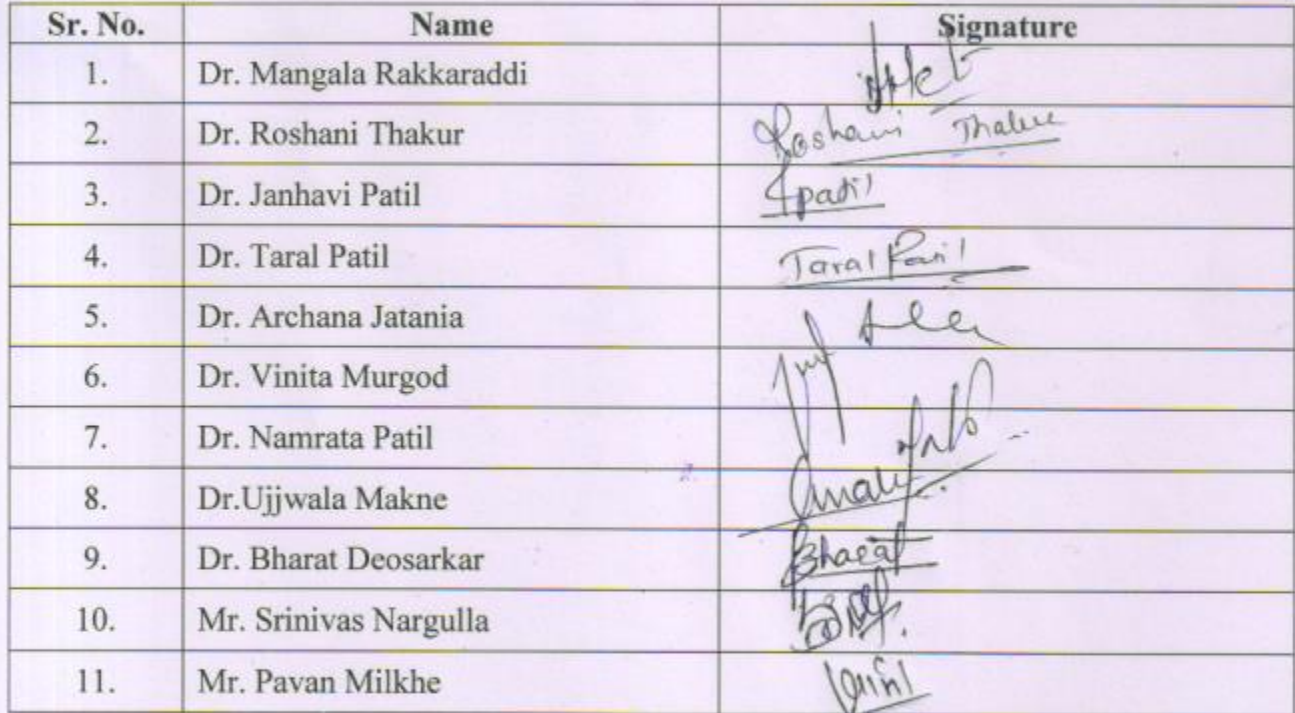 Sr. No. Name Signature
1. Dr. Mangala Rakkaraddi
2. Dr. Roshani Thakur Roshani
3. Dr. Janhavi Patil Jpatil
4. Dr. Taral Patil Taral Patil
5. Dr. Archana Jatania
6. Dr. Vinita Murgod
7. Dr. Namrata Patil
8. Dr.Ujjwala Makne
9. Dr. Bharat Deosarkar Bharat
10. Mr. Srinivas Nargulla
11. Mr. Pavan Milkhe